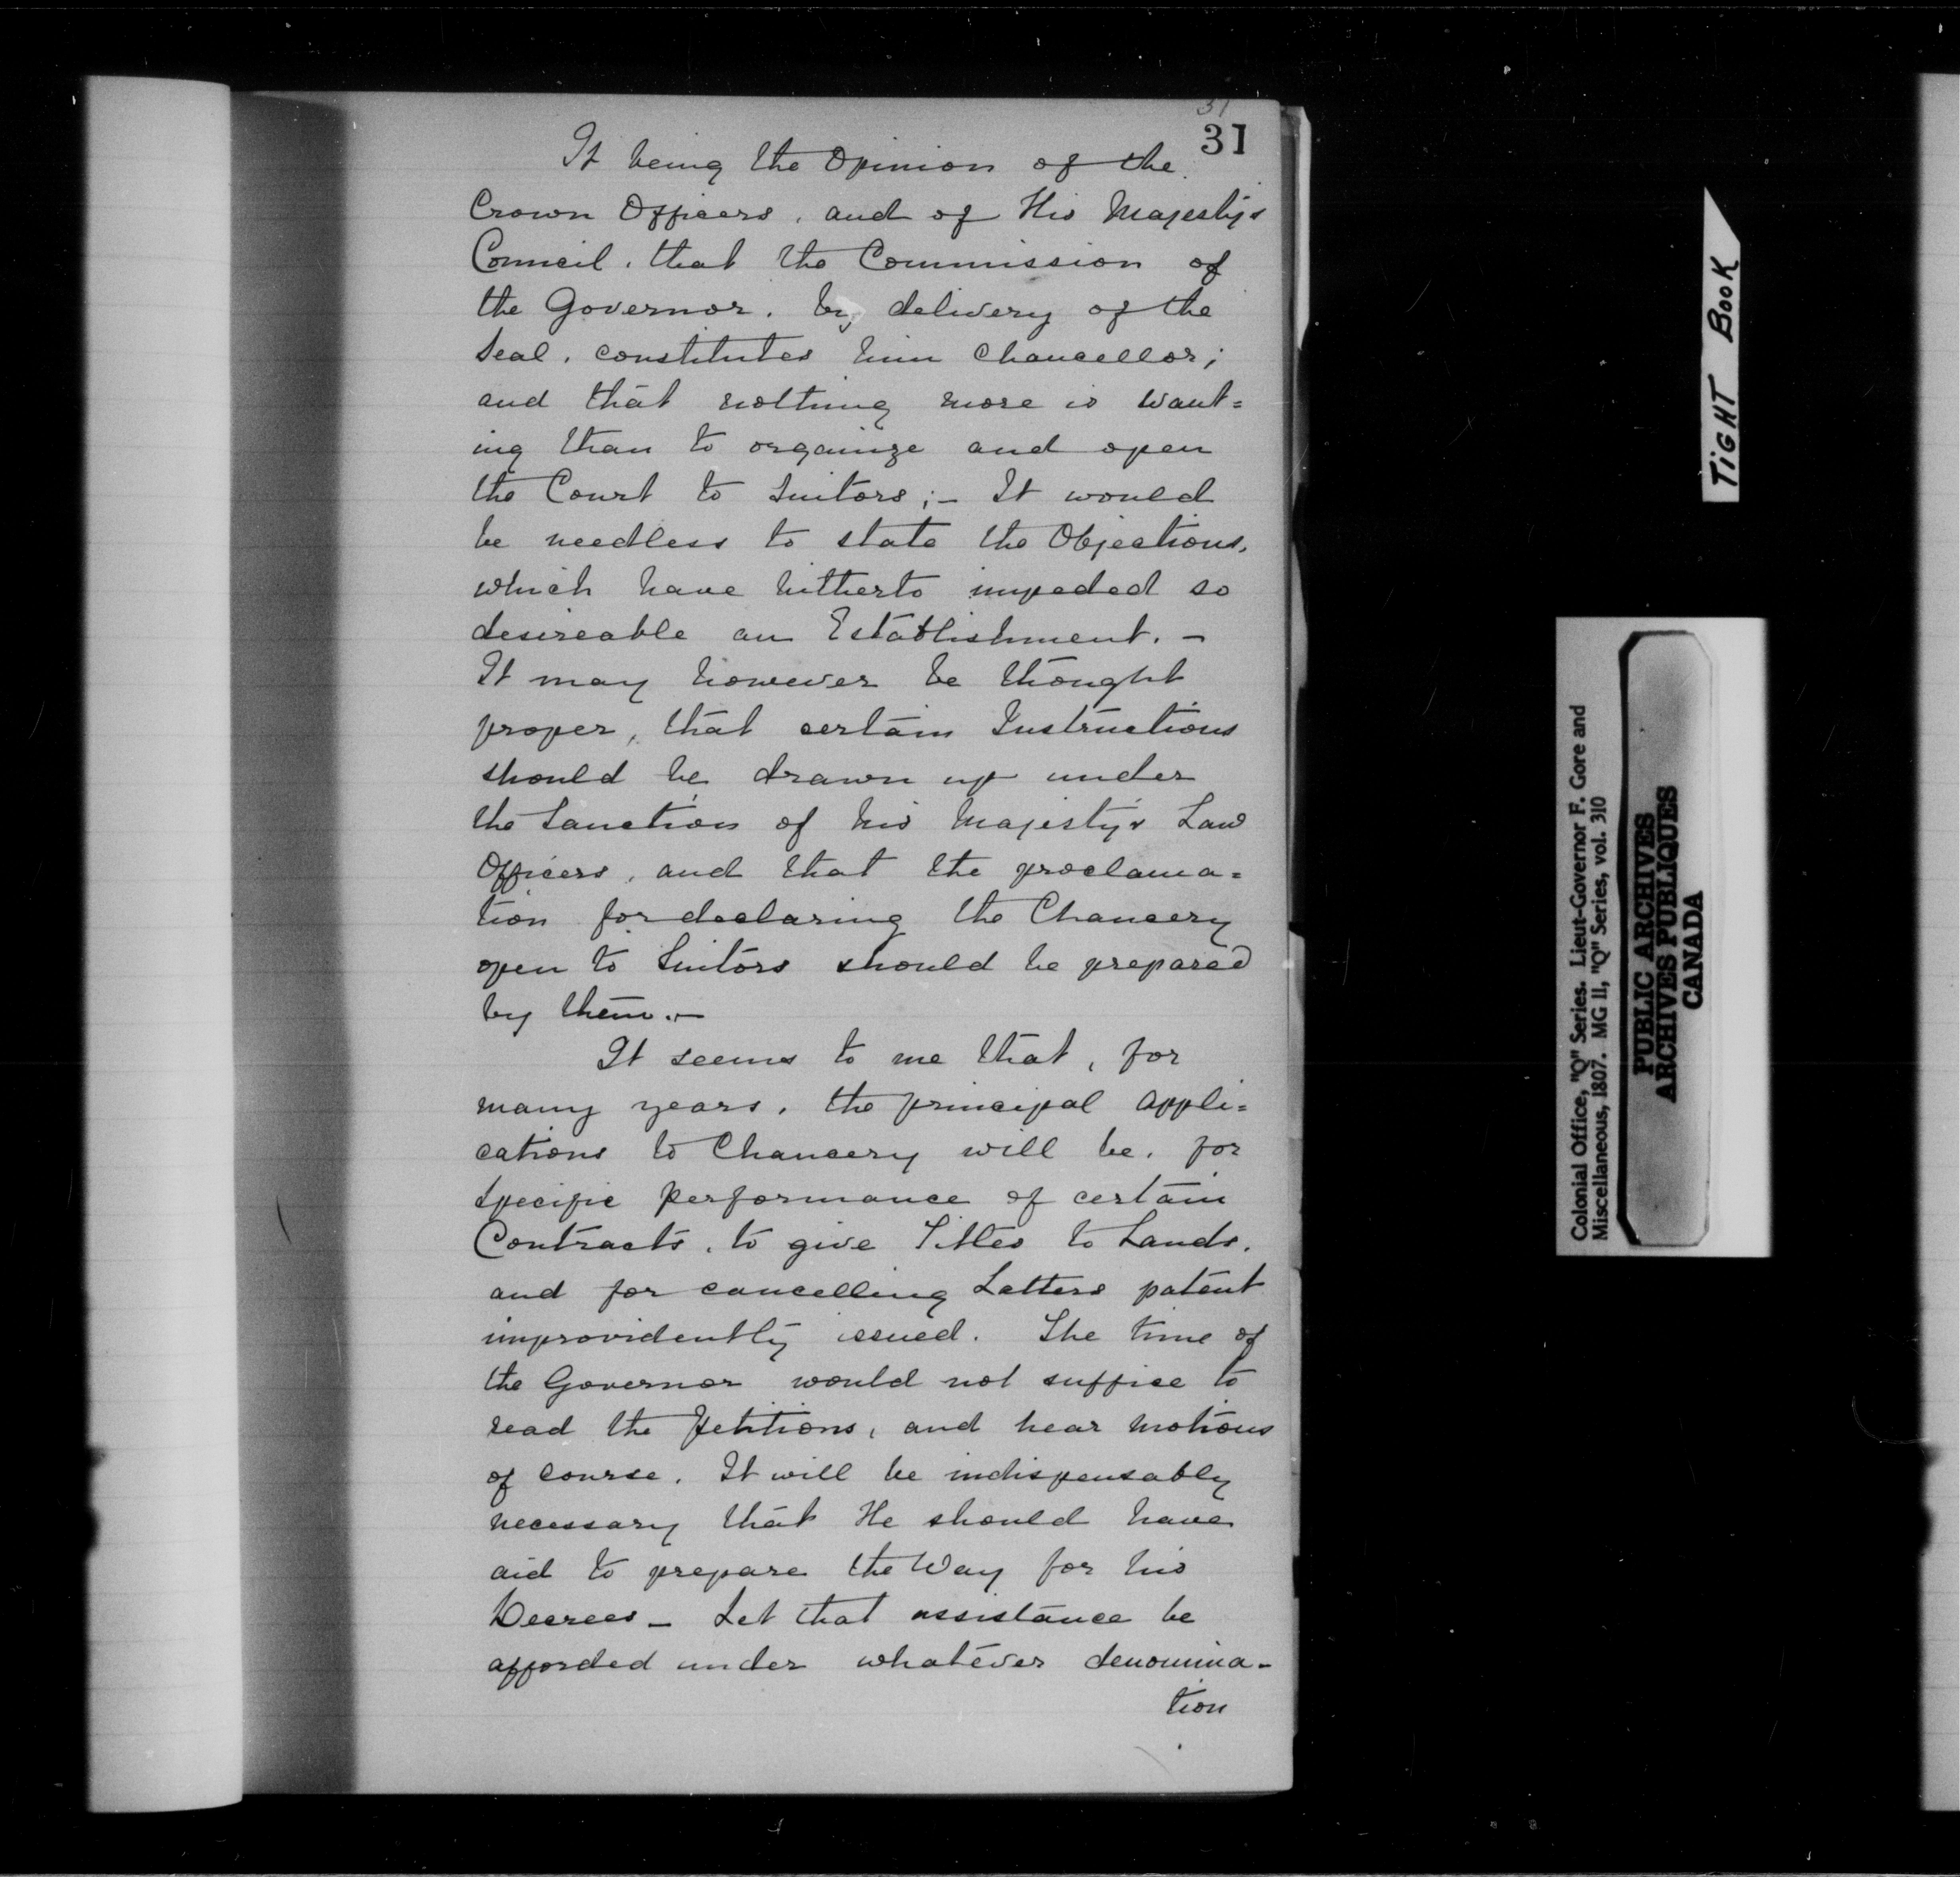 31
31
It being the Opinion of the
Crown Officers, and of His Majesty's
Council, that the Commission of
the Governor, by delivery of the
Seal, constitutes him Chancellor;
and that nothing more is want=
ing than to organize and open
the Court to Suitors;- It would
be needless to state the Objections,
which have hitherto impeded so
desireable an Establishment. -
It may however be thought
proper, that certain Instructions
should be drawn up under
the Sanction of his Majesty's Law
Officers, and that the proclama=
tion for declaring the Chancery
open to Suitors should be prepared
by them.-
It seems to me that, for
many years, the principal appli=
cations to Chancery will be, for
specific performance of certain
Contracts, to give Titles to Lands,
and for cancelling Letters patent
improvidently issued. The time of
the Governor would not suffice to
read the Petitions, and hear motions
of course. It will be indispensably
necessary that He should have
aid to prepare the Way for his
Decrees - Let that assistance be
afforded under whatever denomina-
tion
TIGHT BOOK
Colonial Office, "Q" Series. Lieut-Governor F. Gore and
Miscellaneous, 1807. MG 11, "Q" Series, vol. 310
PUBLIC ARCHIVES
ARCHIVES PUBLIQUES
CANADA